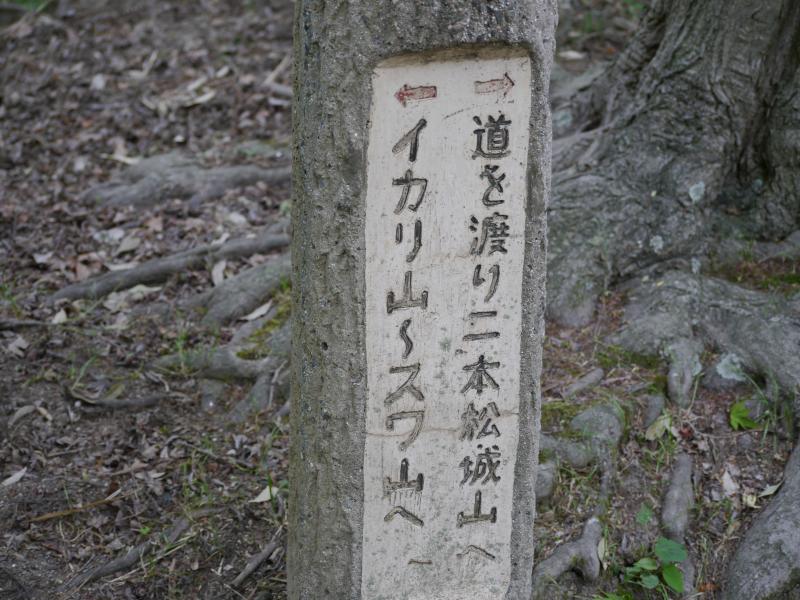 →道を渡り二本松城山へ
←イカリ山〜スワ山へ